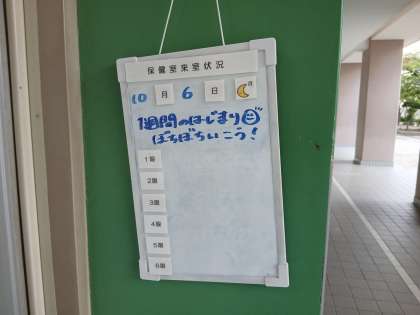 保健室来室状況
10月6日 月
1週間のはじまり
ぼちぼちいこう!
1限
2限
3限
4限
5限
6限